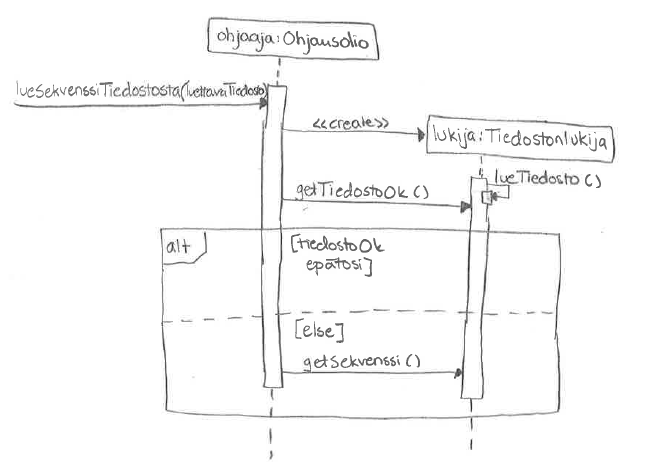 ohjaaja:Ohjausolio
lueSekvenssiTiedostosta(luettavaTiedosto)
<<create>>
lukija:Tiedostonlukija
lueTiedosto()
getTiedostoOk()
alt
[tiedostoOk
epätosi]
[else]
getSekvenssi()